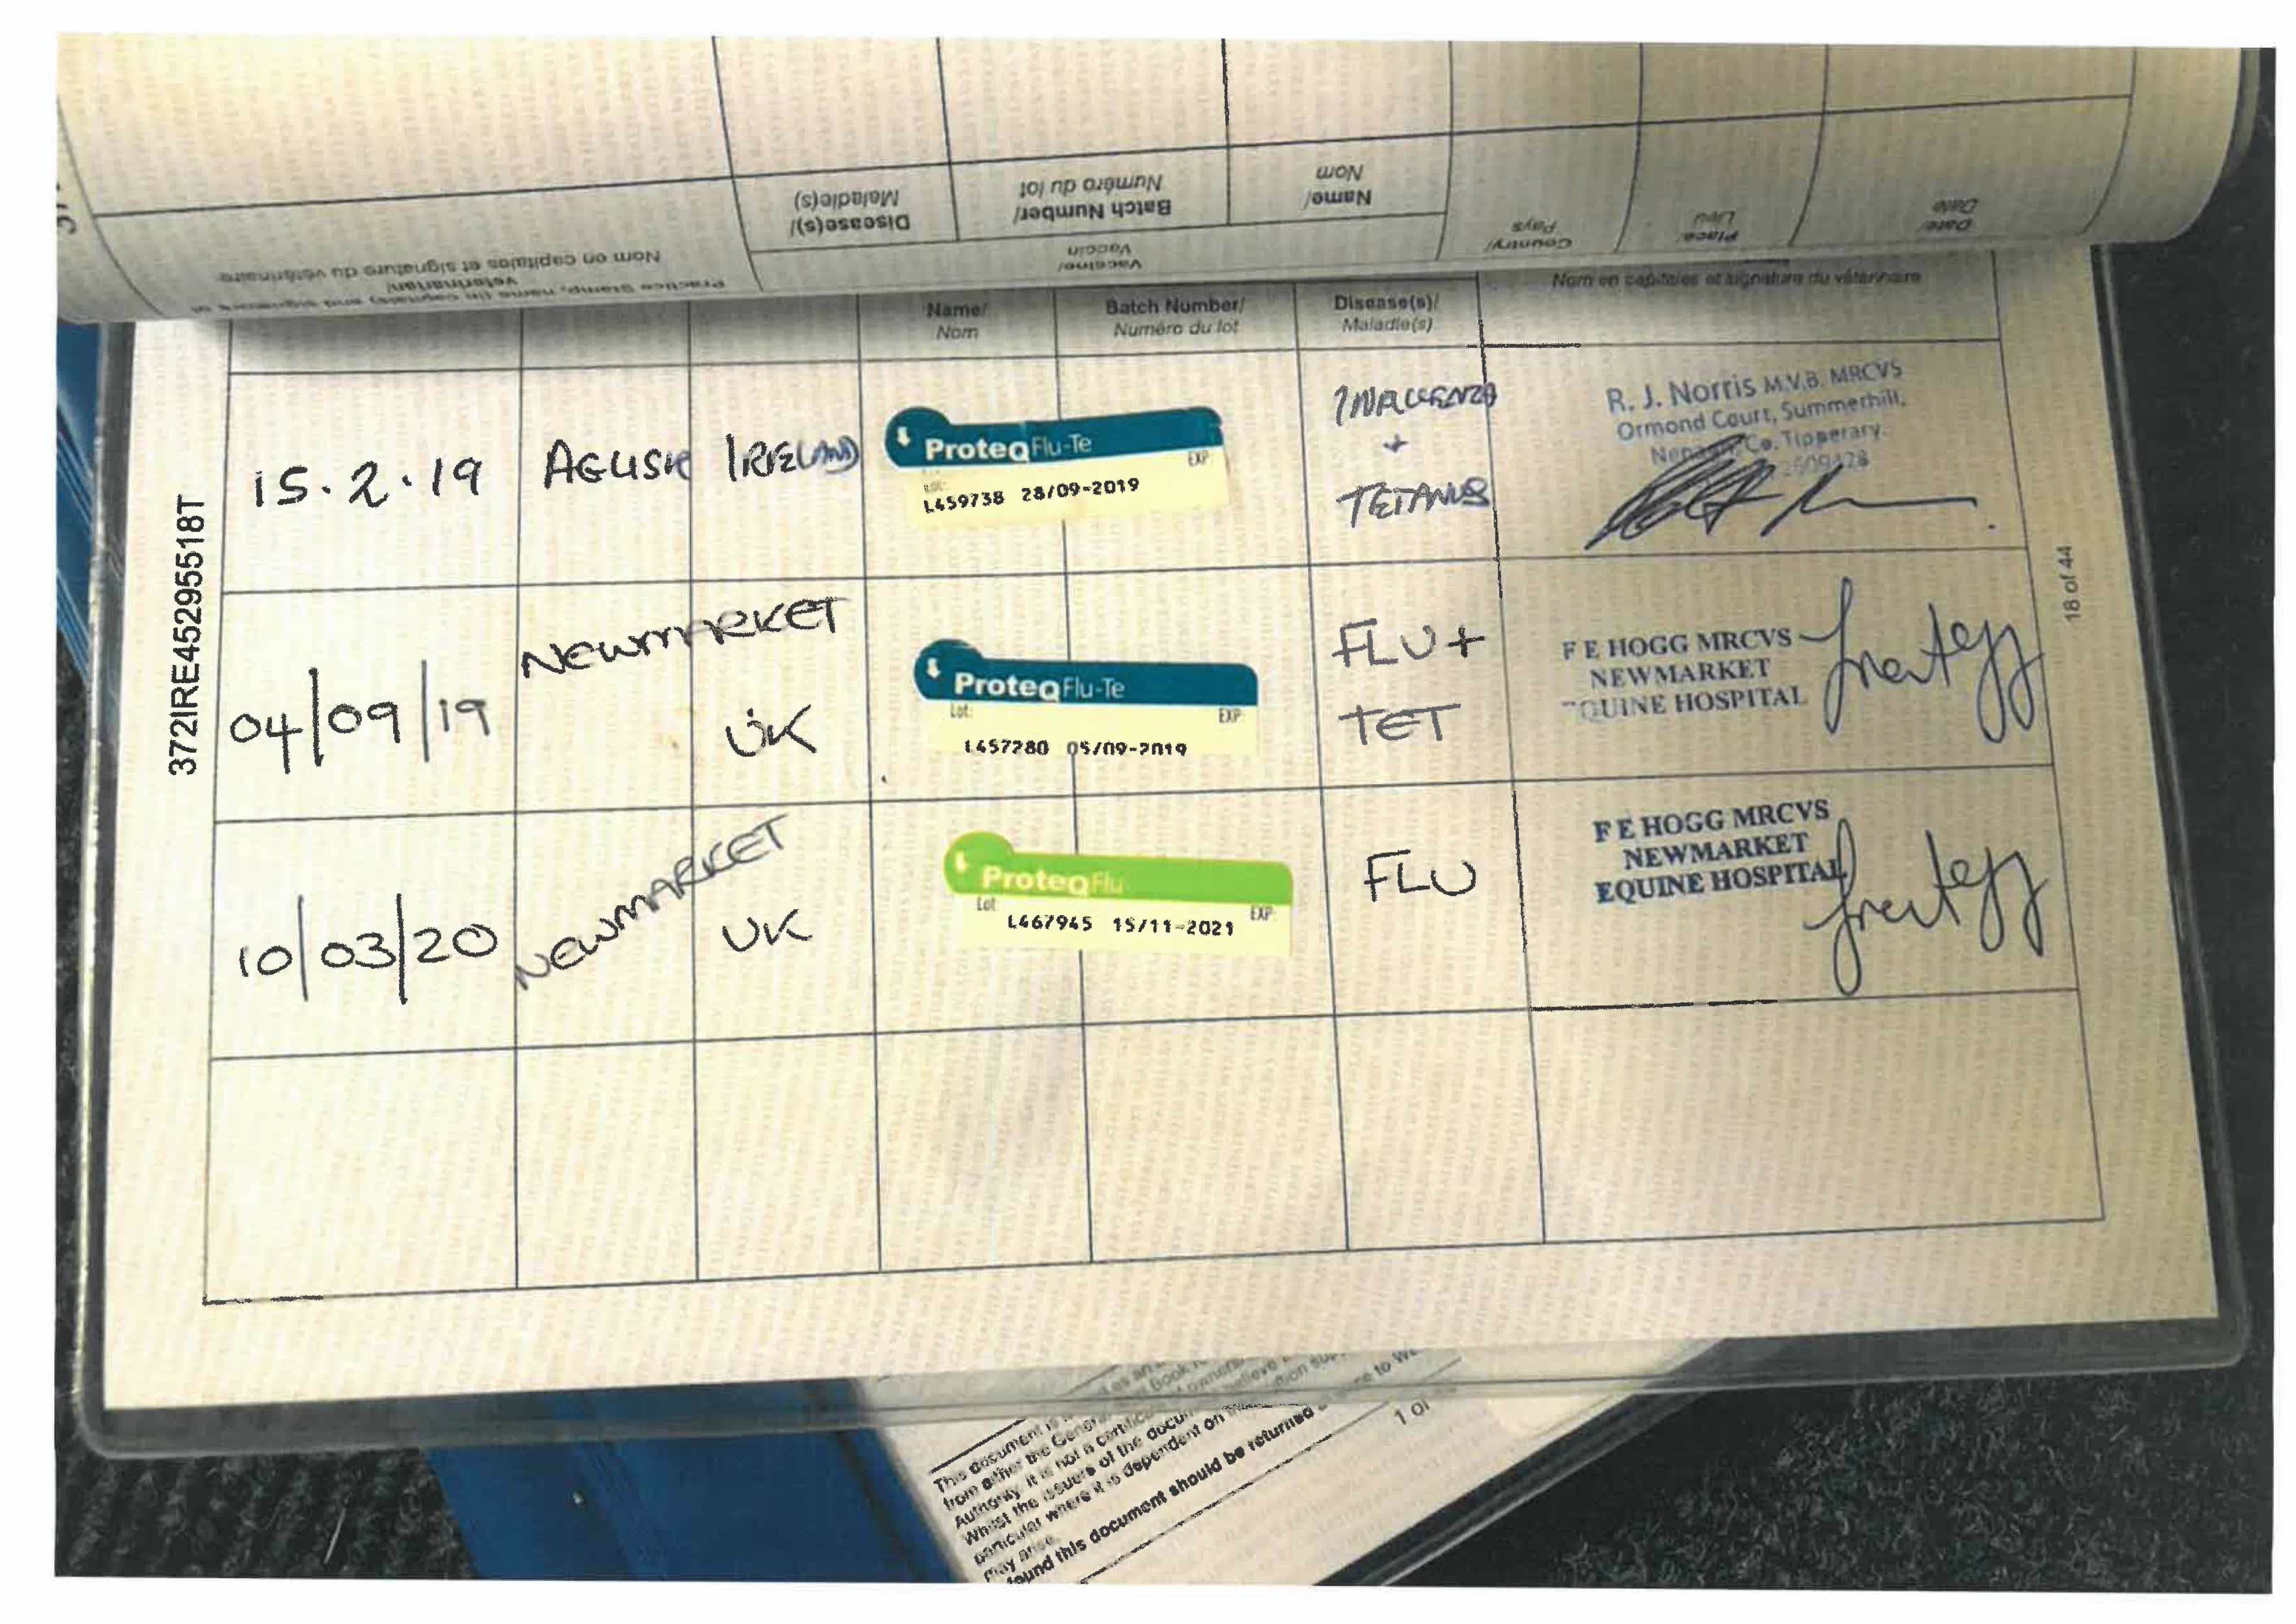 Practice Stamp, name (in capitals) and signature of
veterinarian/
Nom en capitales et signature du vétérinaire
Vaccine/
Vaccin
Disease(s)/
Maladie(s)
Batch Number/
Numéro du lot
Name/
Nom
Country/
Pays
Place/
Lieu
Date/
Date
Name/
Nom
Batch Number/
Numéro du lot
Disease(s)/
Maladie(s)
Nom en capitales et signature du vétérinaire
372IRE45295518T
18 of 44
15.2.19
AGLISH
IRELAND
ProteqFlu-Te
Lot:
EXP
L459738 28/09-2019
INFLUENZA
+
TETANUS
R. J. Norris M.V.B. MRCVS
Ormond Court, Summerhill,
Nenagh, Co. Tipperary.
2609428
04/09/19
NEWMARKET
UK
ProteqFlu-Te
Lot:
EXP:
L457280 05/09-2019
FLU+
TET
F E HOGG MRCVS
NEWMARKET
EQUINE HOSPITAL
10/03/20
NEWMARKET
UK
ProteqFlu
Lot:
EXP:
L467945 15/11-2021
FLU
F E HOGG MRCVS
NEWMARKET
EQUINE HOSPITAL
This document is
from either the General
Authority. It is not a certific
Whilst the issuers of the docum
particular where it is dependent on
may arise.
found this document should be returned
to W
1 of